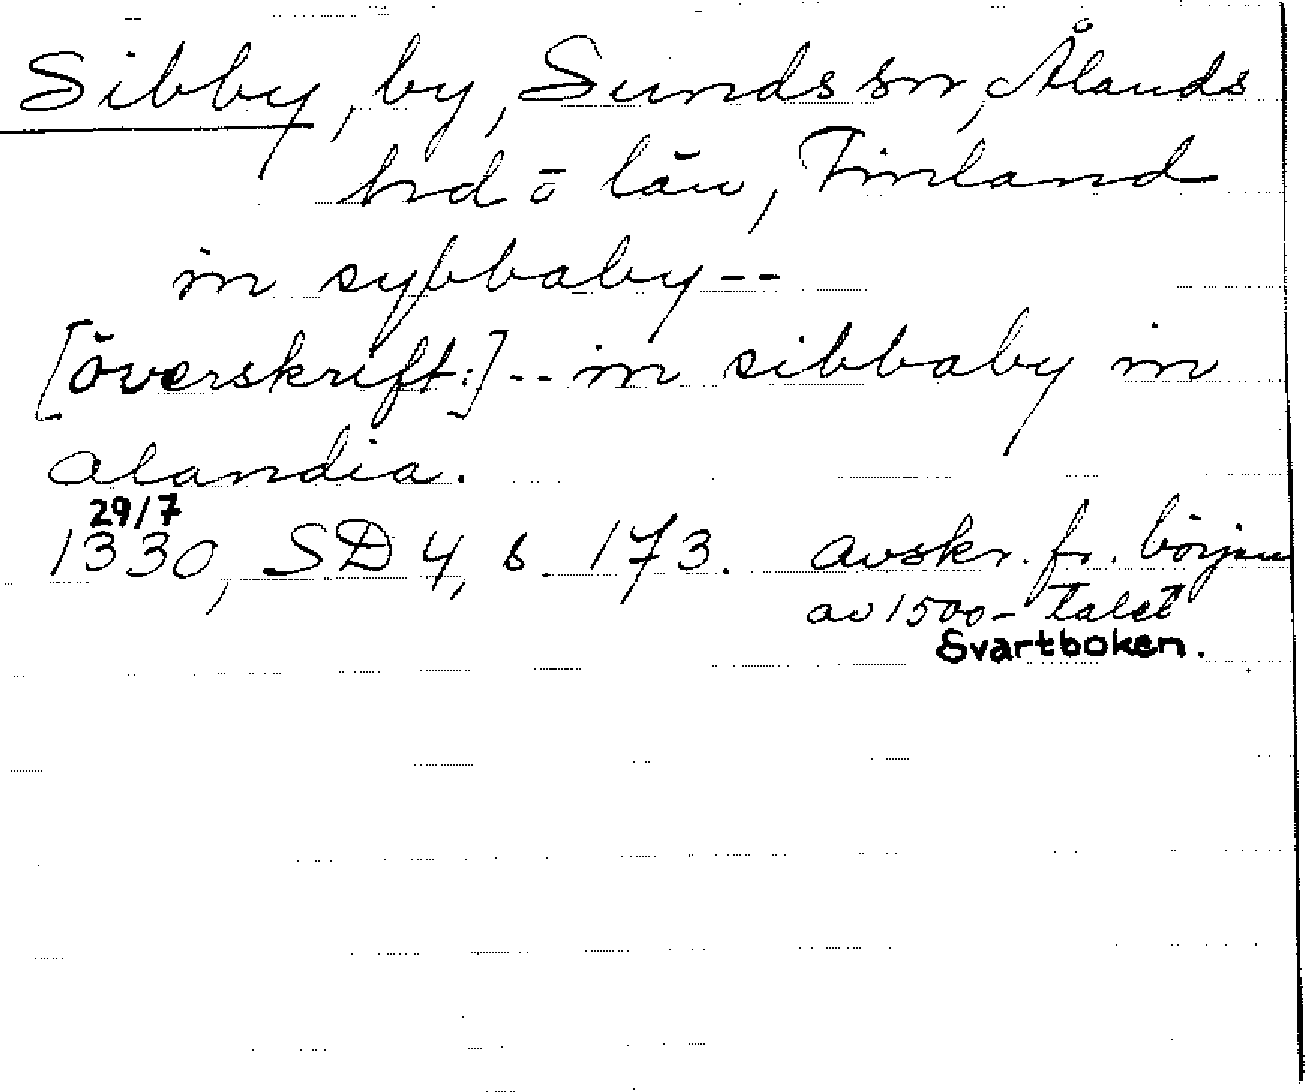 Sibby, by, Sunds sn, Ålands
hd o län, Finland
in sybbaby --
[överskrift:] -- in sibbaby in
alandia.
29/7
1330, SD 4, s. 173. avskr. fr. början
av 1500-talet
Svartboken.